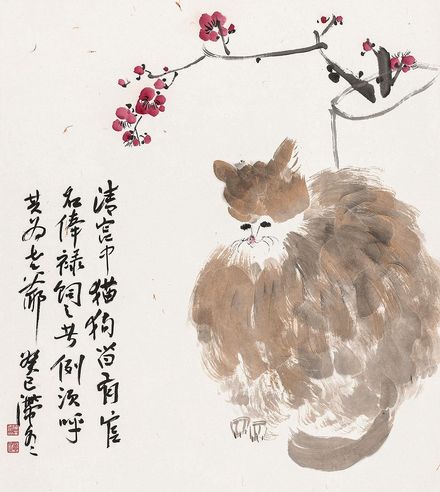 清宫中猫狗尚有官
名俸禄饲之者例须呼
其为老爺 癸巳